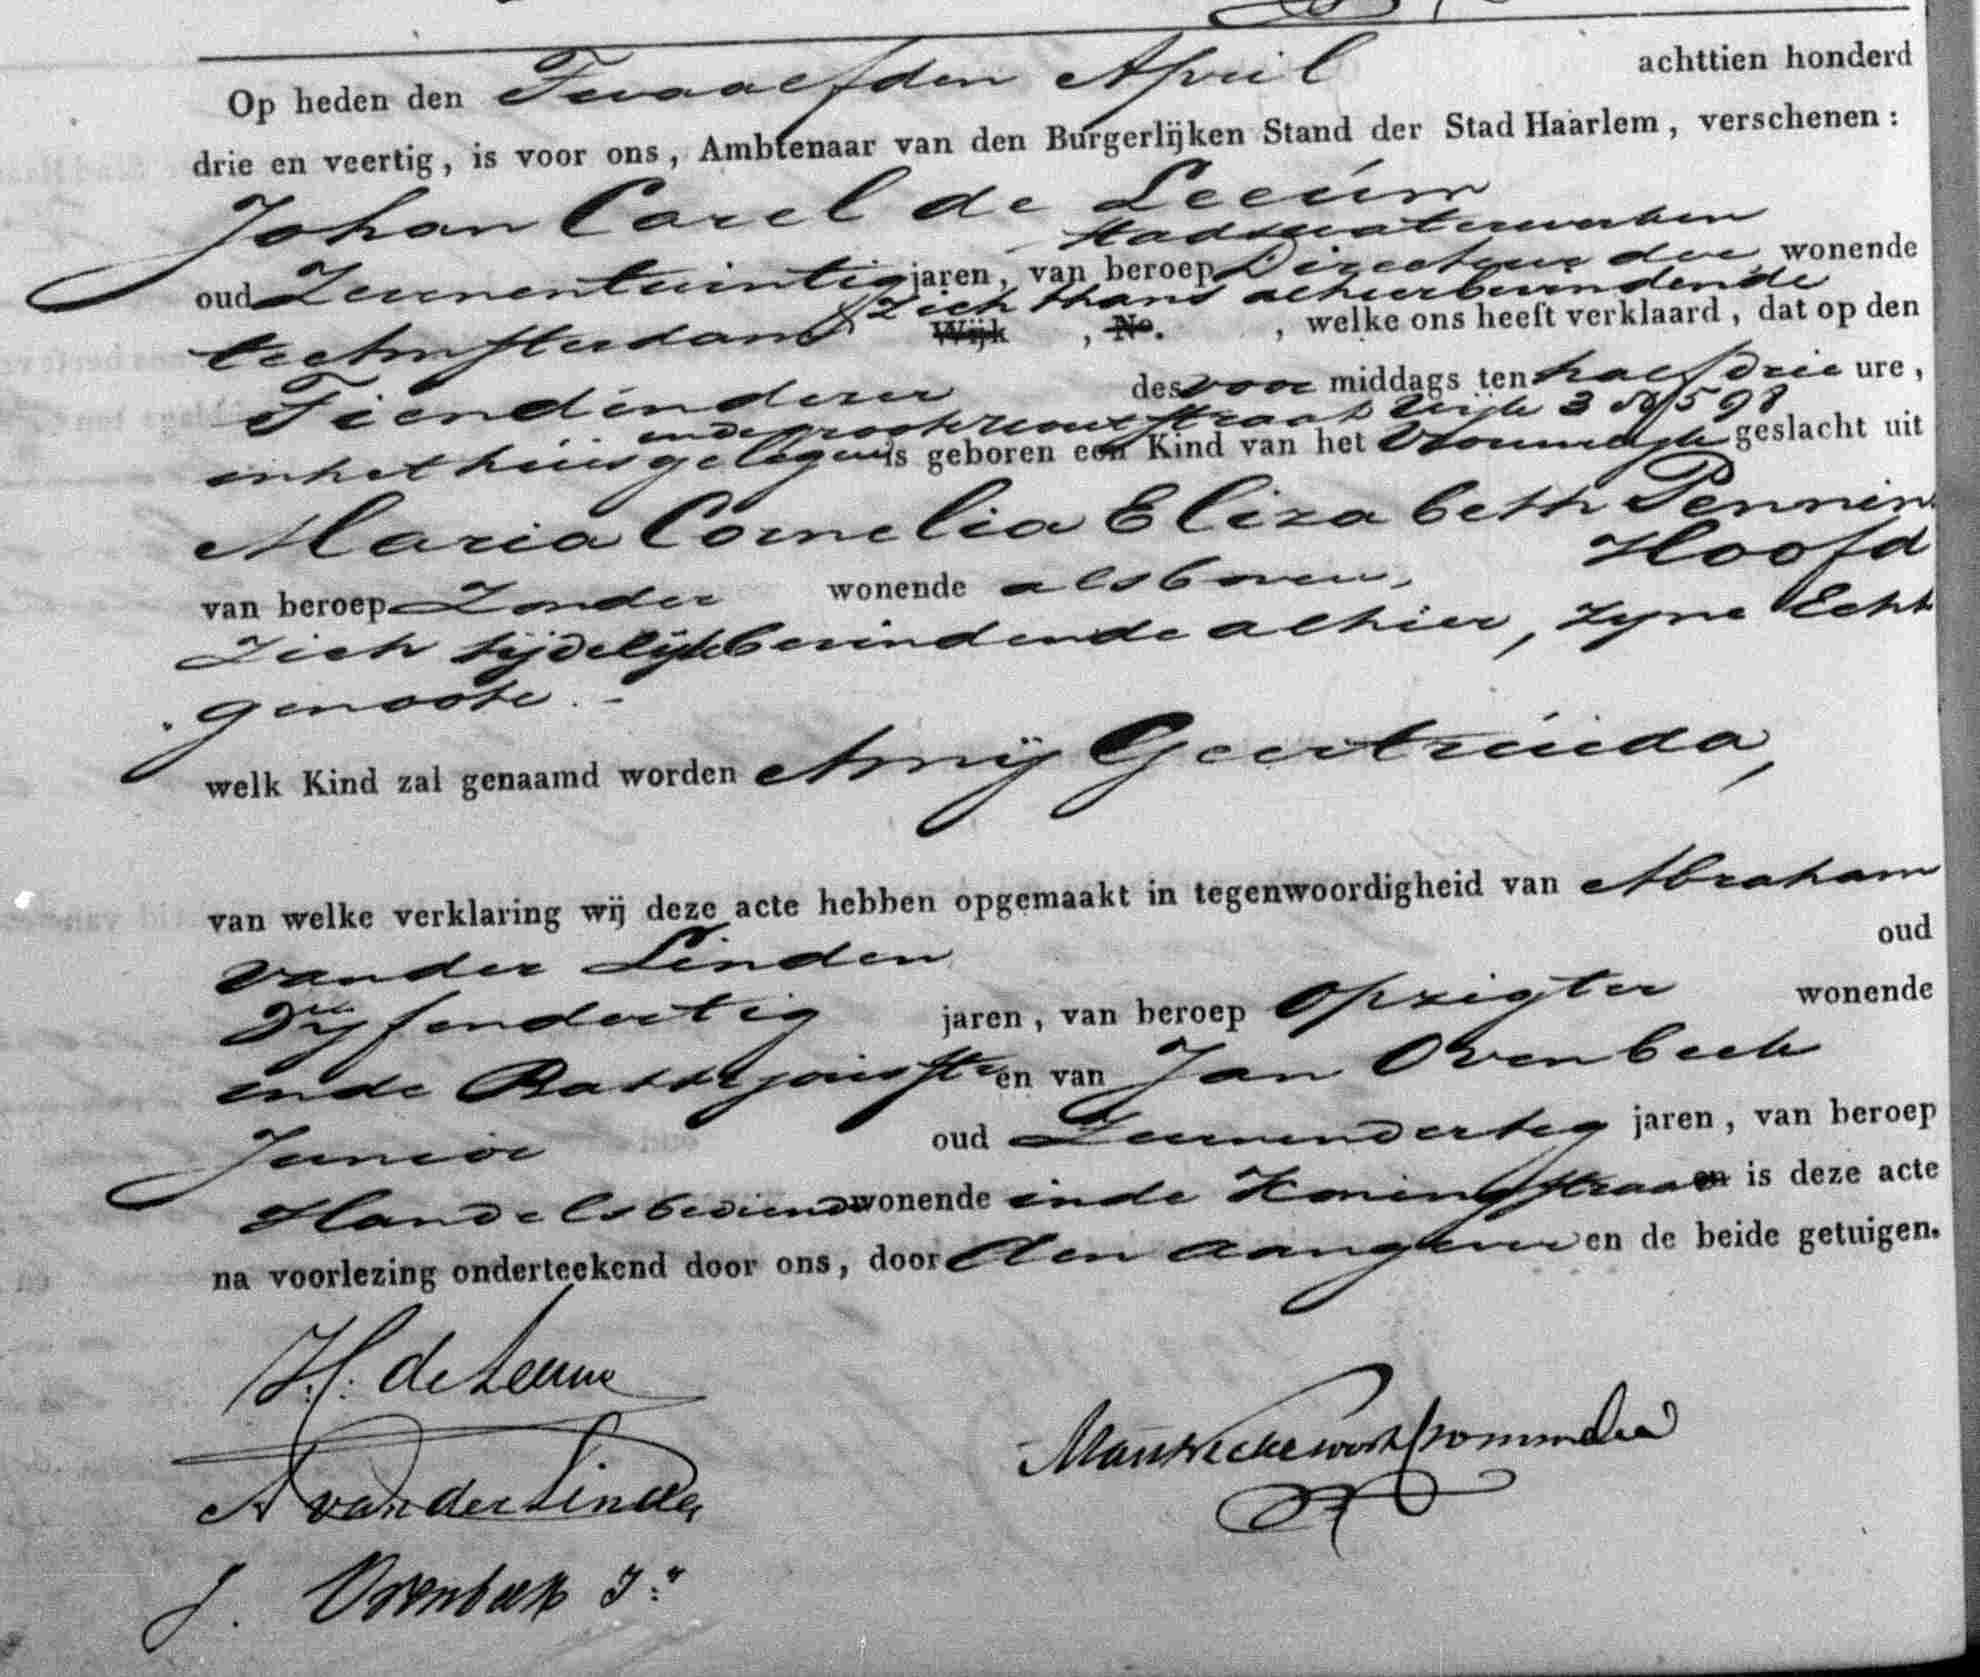 Op heden den Twaalfden April achttien honderd
drie en veertig, is voor ons, Ambtenaar van den Burgerlijken Stand der Stad Haarlem, verschenen:
Johan Carel de Leeuw
Stadswaterwerken
oud Zevenentwintig jaren, van beroep Directeur der wonende
zich thans alhier bevindende
te Amsterdam Wijk , No. , welke ons heeft verklaard, dat op den
Tienden dezer des voor middags ten half drie ure,
in de groote Houtstraat Wijk 3 No 598
in het huis gelegen is geboren een Kind van het Vrouwelijk geslacht uit
Maria Cornelia Elizabeth Pennin
Hoofd
van beroep Zonder wonende als boven,
Zich tijdelijk bevindende alhier, Zyne Echt
genoote.-
welk Kind zal genaamd worden Amij Geertruida,
van welke verklaring wij deze acte hebben opgemaakt in tegenwoordigheid van Abraham
van der Linden oud
Vijfendertig jaren, van beroep Opzigter wonende
in de en van Jan Ovenbeek
Junior oud Zevenendertig jaren, van beroep
Handelsbediende wonende in de Koningstraat en is deze acte
na voorlezing onderteekend door ons, door den aangever en de beide getuigen.
de Leeuw
A van der Linden
J. Ovenbeek Jr